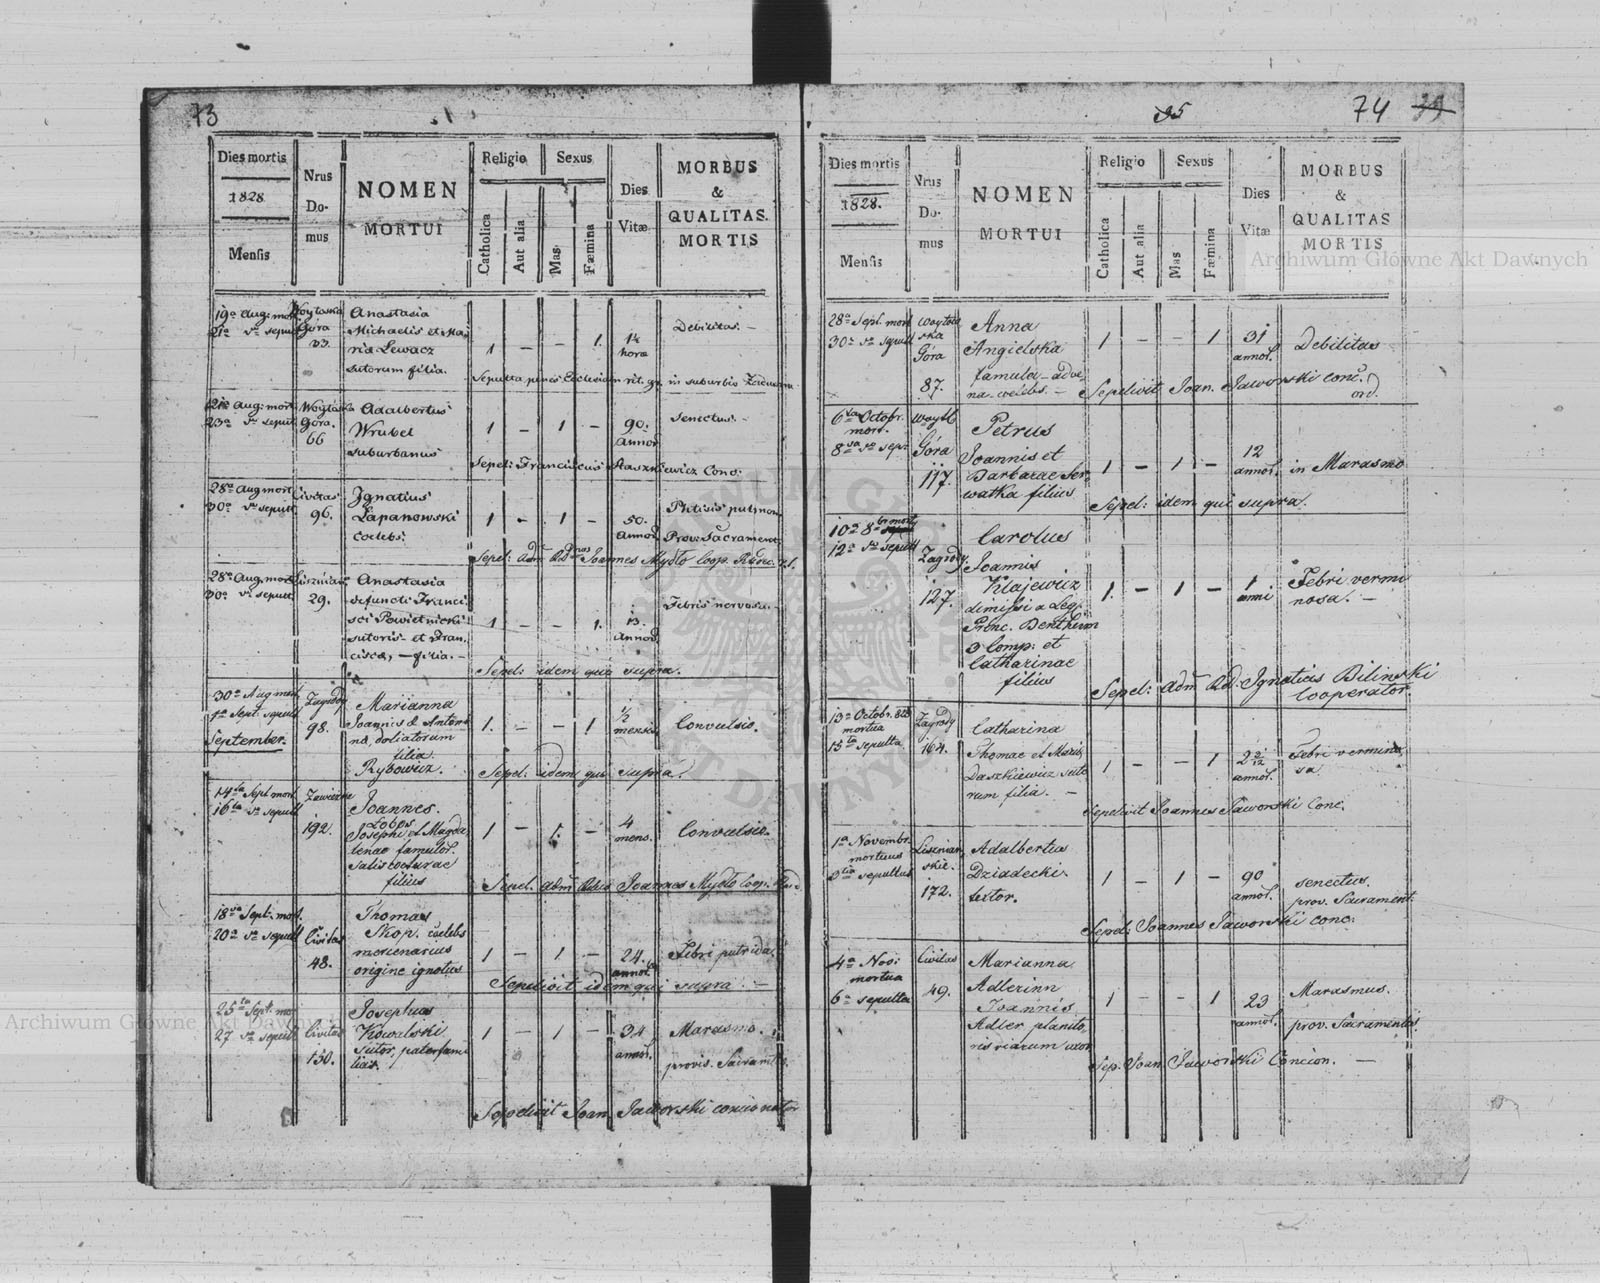 73
Dies mortis
1828
Mensis
Nrus
Do-
mus
NOMEN
MORTUI
Religio
Catholica
Aut alia
Sexus
Mas
Fæmina
Dies
Vitæ
MORBUS
&
QUALITAS
MORTIS
19a Aug: mort
21a sepult
Woytoska
Góra
33.
Anastasia
Michaelis et Ma-
ria Lewacz
sutorum filia.
1 - - 1.
14
horæ
Debilitas. -
Sepulta penes Ecclesiam rit. gr. in suburbio
Aug: mort
23a sepult
Woytoska
Góra.
66
Adalbertus
Wrubel
suburbanus
1 - 1 -
90.
Annor
Senectus. -
Sepel: Franciscus Staszkiewicz Conc:
28a Aug mort
30a sepult
Civitas
96.
Ignatius
Lapanowski
coelebs.
1 - 1 -
50.
Annor
Phtisis pulmon.
Prov: Sacrament.
Sepel: Adm Rdnus Joannes Mydło Coop.
28a Aug mort
30a sepult
29.
Anastasia
defuncti Franci
sci Powietnicki
sutoris et Fran-
cisca, - filia. -
1 - - 1.
13.
Annor
Febris nervosa.
Sepel: idem qui supra.
30a Aug mort
1a Sept. sepult
September.
Zagrody
98.
Marianna
Joannis & Antoni
na, doliatorum
filia.
Rybowicz.
1. - - 1
1/2
mensis
Convulsio.
Sepel: idem qui supra.
14ta Sept mort
16ta sepult
192.
Joannes.
Łobos
Josephi et Magda
lenae famulor.
Salis cocturae
filius
1 - 1. -
4
mens.
Convulsio.
Sepel. Adm Rdus Joannes Mydło Coop.
18va Sept. mort.
20a sepult
Civitas
48.
Thomas
Skop. coelebs
mercenarius
origine ignotus
1 - 1 -
24.
annor
Febri putrida.
Sepelivit idem qui supra -
25ta Sept. mor
27 sepult
Civitas
130.
Josephus
Kowalski
sutor, paterfami
lias.
1 - 1 -
34
annor.
Marasmo.
provis. Sacram
Sepelivit Joan. Jaworski concionator
35
74
Dies mortis
1828.
Mensis
Nrus
Do-
mus
NOMEN
MORTUI
Religio
Catholica
Aut alia
Sexus
Mas
Fæmina
Dies
Vitæ
MORBUS
&
QUALITAS
MORTIS
28a Sept. mort
30a sepult
Woyto
ska
Góra
87.
Anna
Angielska
famula - adve-
na coelebs. -
1 - - 1
31
annor.
Debilitas
Sepelivit Joan. Jaworski Conc.
ord.
6ta Octobr.
mort.
8va sep:
Góra
117.
Petrus
Joannis et
Barbarae Ser
watka filius
1 - 1 -
12
annor.
in Marasmo
Sepel: idem qui supra.
10a 8br mort
12a sepult
Zagrody
127.
Carolus
Joannis
Klajewicz
dimissi a Leg:
Princ. Bentheim
3 Comp: et
Catharinae
filius
1. - 1 -
1
anni
Febri vermi
nosa. -
Sepel: Adm Rd: Ignatius Bilinski
Cooperator
13a Octobr.
mortua
15ta sepulta
Zagrody
164.
Catharina
Thomae et Mariæ
Daszkiewicz suto
rum filia. -
1 - - 1
annor.
Febri vermino
sa
Sepelivit Joannes Jaworski Conc.
1a Novembr.
mortuus
3tia sepultus
Lisznian
skie.
172.
Adalbertus
Dziadecki
textor.
1 - 1 -
90
annor.
senectus.
prov. Sacrament.
Sepel: Joannes Jaworski Conc:
4a Nov:
mortua
6a sepulta
Civitas
49.
Marianna
Adlerinn
Joannis
Adler planito
ris viarum uxor
1 - - 1
23
annor.
Marasmus.
prov. Sacramentis.
Sep. Joan Jaworski Concion. -
Archiwum Główne Akt Dawnych
Archiwum Główne Akt Dawnych
ARCHIWUM GŁÓWNE AKT DAWNYCH